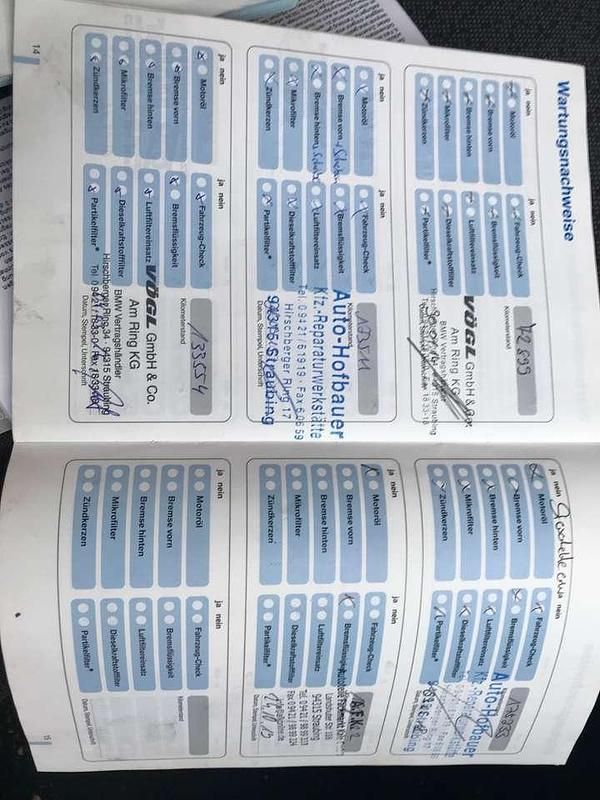 Wartungsnachweise
ja nein
Motoröl
Bremse vorn
Bremse hinten
Mikrofilter
Zündkerzen
ja nein
Fahrzeug-Check
Bremsflüssigkeit
Luftfiltereinsatz
Dieselkraftstofffilter
Partikelfilter*
Kilometerstand
72899
VÖGL GmbH & Co.
Am Ring KG
BMW Vertragshändler
ja nein
Motoröl
Bremse vorn
Bremse hinten
Mikrofilter
Zündkerzen
ja nein
Fahrzeug-Check
Bremsflüssigkeit
Luftfiltereinsatz
Dieselkraftstofffilter
Partikelfilter*
Auto-Hofbauer
Kfz.-Reparaturwerkstätte
Hirschberger Ring 17
Tel. 0 94 21 / 6 19 19 · Fax 6 06 59
94315 Straubing
Datum, Stempel, Unterschrift
ja nein
Motoröl
Bremse vorn
Bremse hinten
Mikrofilter
Zündkerzen
ja nein
Fahrzeug-Check
Bremsflüssigkeit
Luftfiltereinsatz
Dieselkraftstofffilter
Partikelfilter*
Kilometerstand
133554
VÖGL GmbH & Co.
Am Ring KG
BMW Vertragshändler
Hirschberger Ring 34 · 94315 Straubing
Datum, Stempel, Unterschrift
14
ja nein
Motoröl
Bremse vorn
Bremse hinten
Mikrofilter
Zündkerzen
ja nein
Fahrzeug-Check
Bremsflüssigkeit
Luftfiltereinsatz
Dieselkraftstofffilter
Partikelfilter*
Auto-Hofbauer
ja nein
Motoröl
Bremse vorn
Bremse hinten
Mikrofilter
Zündkerzen
ja nein
Fahrzeug-Check
Bremsflüssigkeit
Luftfiltereinsatz
Dieselkraftstofffilter
Partikelfilter*
Landshuter Str.
94315 Straubing
Datum, Stempel, Unterschrift
ja nein
Motoröl
Bremse vorn
Bremse hinten
Mikrofilter
Zündkerzen
ja nein
Fahrzeug-Check
Bremsflüssigkeit
Luftfiltereinsatz
Dieselkraftstofffilter
Partikelfilter*
Kilometerstand
Datum, Stempel, Unterschrift
15